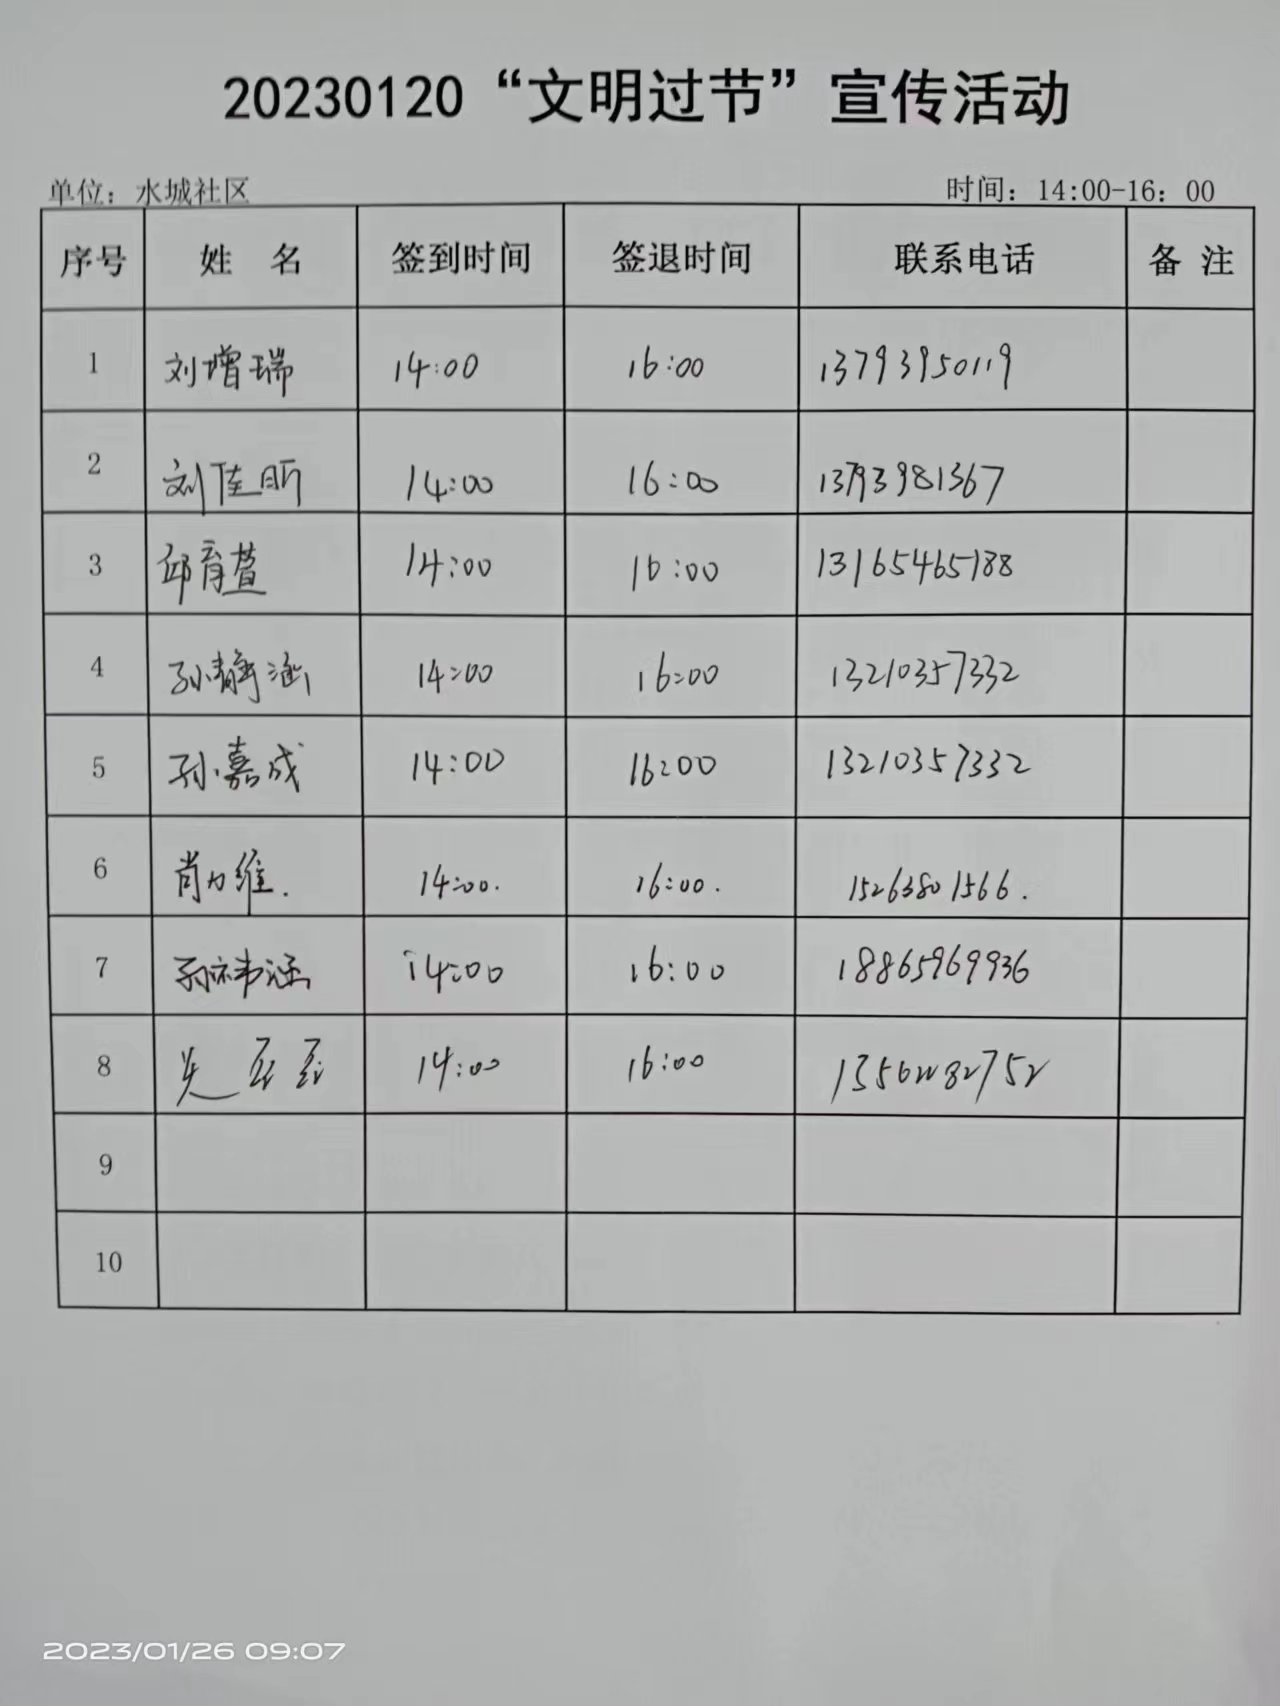 20230120“文明过节”宣传活动
单位：水城社区 时间：14:00-16：00
序号 姓 名 签到时间 签退时间 联系电话 备 注
1 刘增瑞 14:00 16:00 13793950119
2 刘佳昕 14:00 16:00 13793981367
3 邱育萱 14:00 16:00 13165465188
4 孙静涵 14:00 16:00 13210357332
5 孙嘉成 14:00 16:00 13210357332
6 肖力维. 14:00. 16:00. 15263801566.
7 孙祎涵 14:00 16:00 18865969936
8 14:00 16:00 13562282752
9
10
2023/01/26 09:07